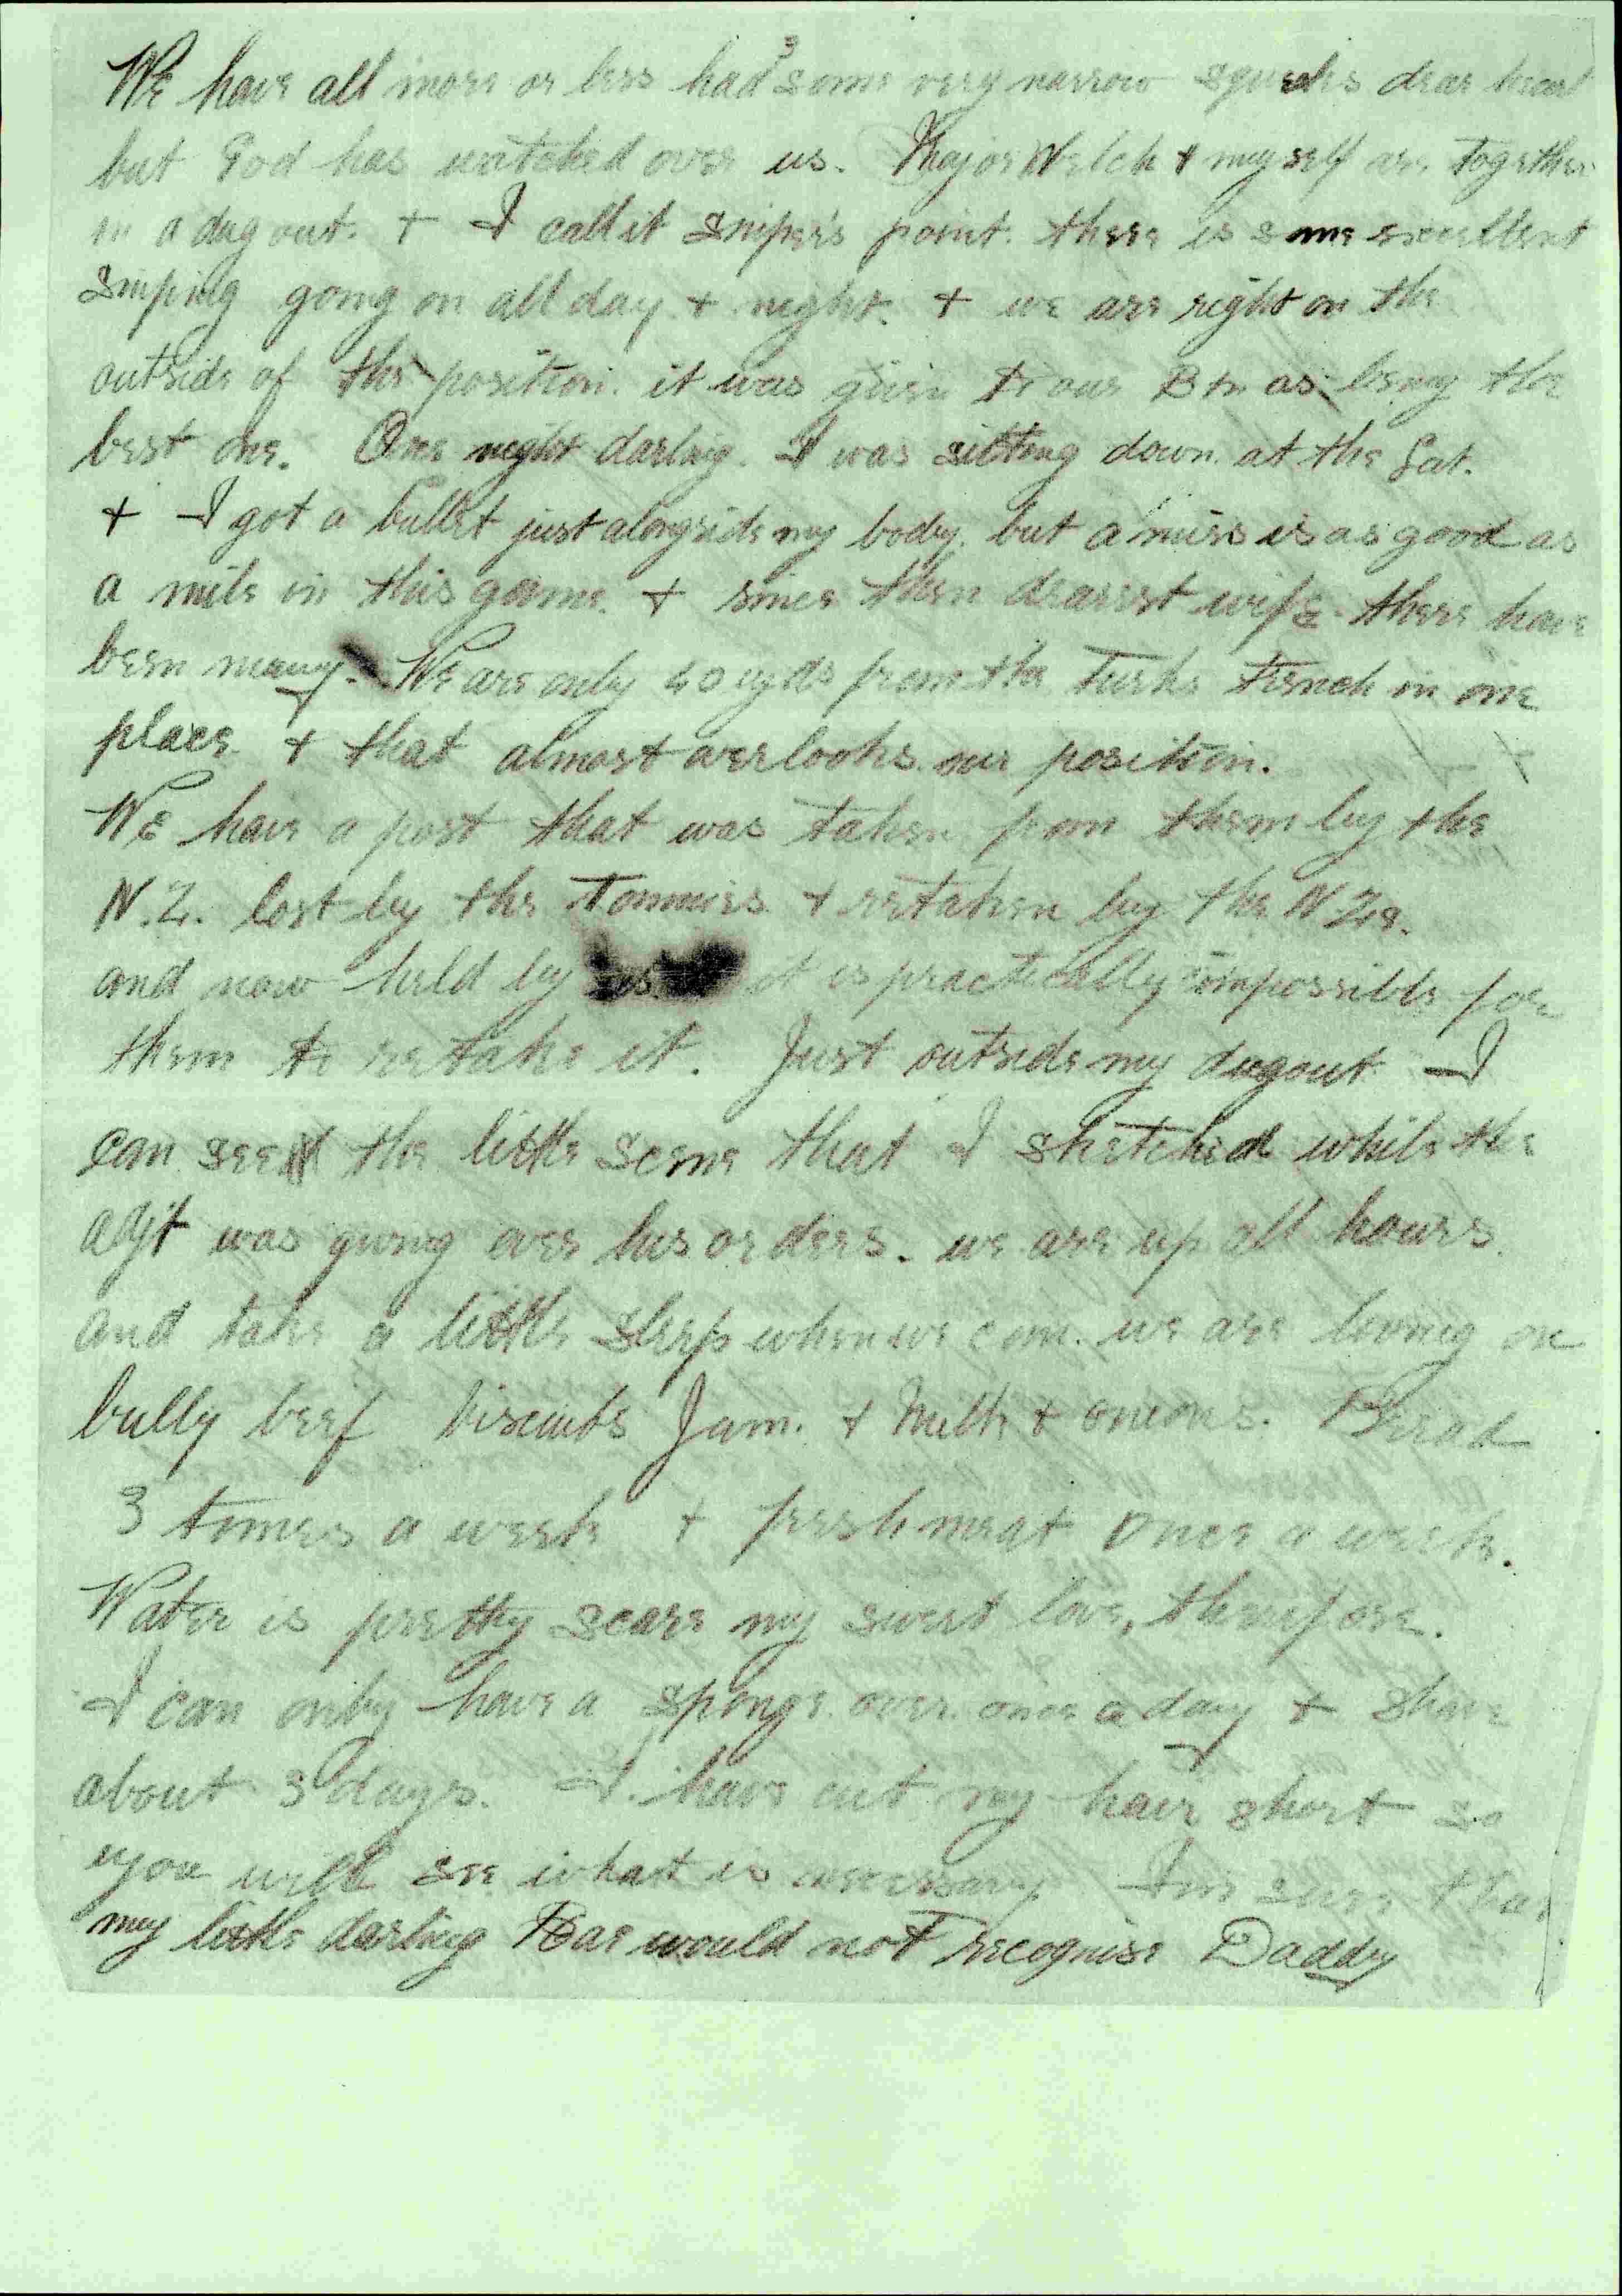 3
We have all more or less had some very narrow squeaks dear heart
but God has watched over us. Major Welch + myself are together
in a dug out. + I call it sniper's point. there is some excellent
Sniping going on all day + night. + we are right on the
outside of the position. it was given to our Btn as being the
best one. One night darling. I was sitting down at the
+ I got a bullet just alongside my body. but a miss is as good as
a mile in this game. + since then dearest wife there have
been many. We are only 40 yds from the Turks trench in one
place + that almost overlooks our position.
We have a post that was taken from them by the
N.Z. lost by the Tommies + retaken by the N Zs.
and now held by us it is practically impossible for
them to retake it. Just outside my dugout I
can see the little scene that I sketched while the
adjt was giving over his orders. we are up all hours.
and take a little sleep when we can. we are living on
bully beef biscuits Jam. + Milk + onions. Bread
3 times a week + fresh meat once a week.
Water is pretty scare my sweet love, therefore.
I can only have a sponge over once a day + shave
about 3 days. I have cut my hair short so
you will see what is necessary I'm sure that
my little darling would not recognise Daddy